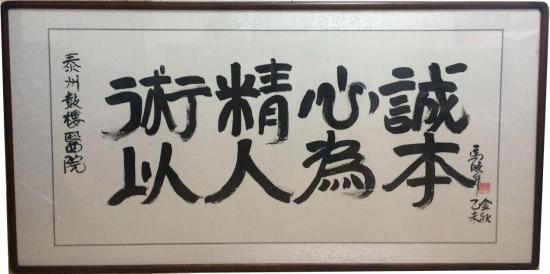 泰州鼓樓醫院
術精心誠
以人為本
乙未
金秋